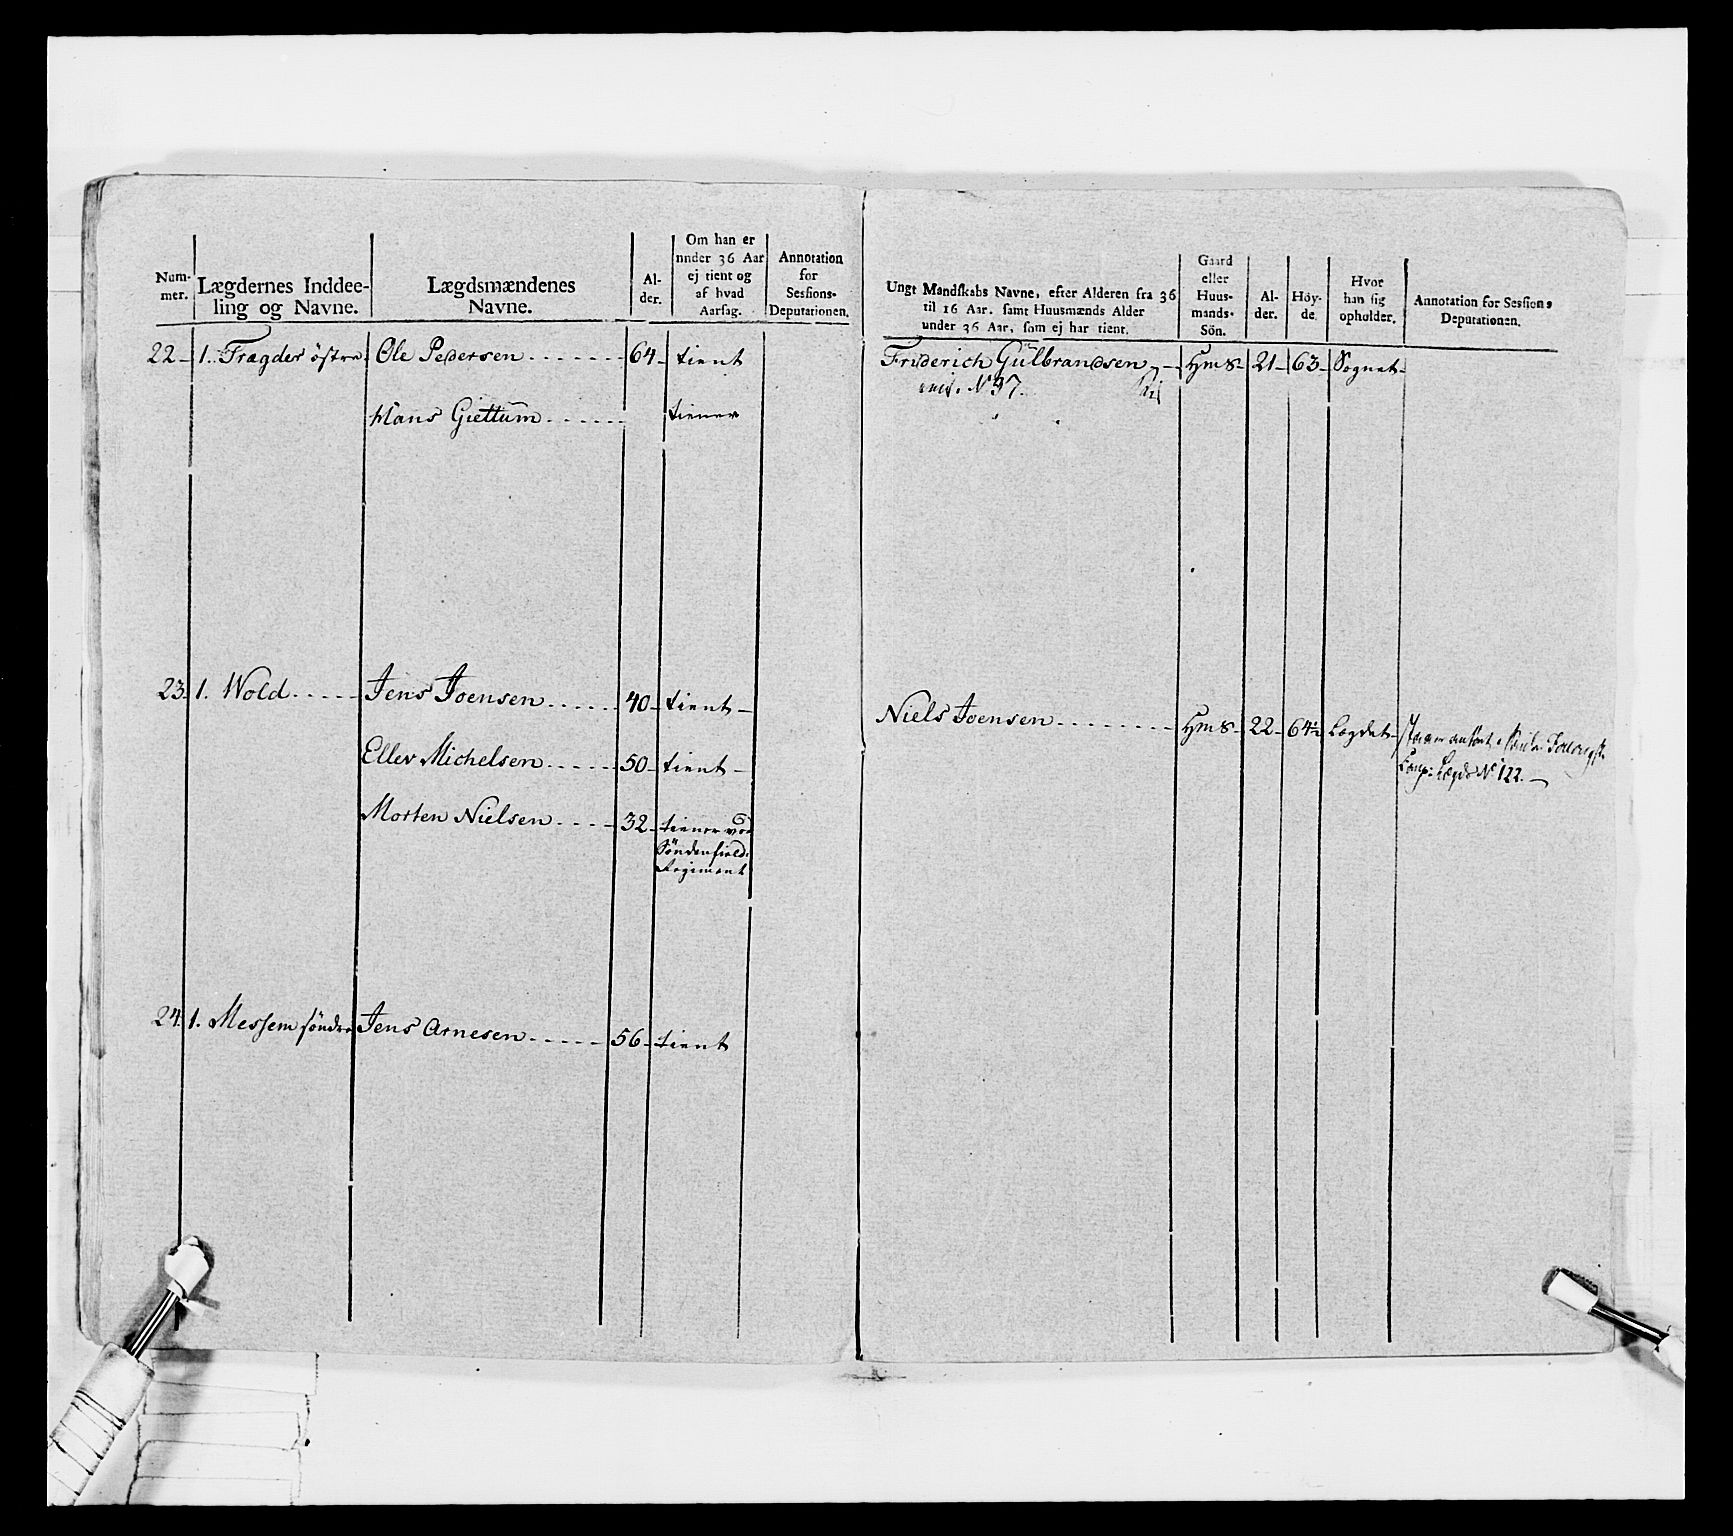 Num-
mer.
Lægdernes Inddee-
ling og Navne.
Lægdsmændenes
Navne.
Al-
der.
Om han er
nnder 36 Aar
ej tient og
af hvad
Aarsag.
Annotation
for
Sessions-
Deputationen.
22. 1. Fragder östre Ole Pedersen 64 tient
Hans Giettum tiener
23. 1. Wold Jens Joensen 40 tient
Ellev Michelsen 50 tient
Morten Nielsen 32 tiener ved
Söndenfield:
Regiment
24. 1. Messem söndre Jens Arnesen 56 tient
Ungt Mandskabs Navne, efter Alderen fra 36
til 16 Aar. samt Huusmænds Alder
under 36 Aar, som ej har tient.
Gaard
eller
Huus-
mands-
Sön.
Al-
der.
Höy-
de.
Hvor
han sig
opholder.
Annotation for Sessions
Deputationen.
Friderich Gülbrandsen Hms 21 63 Sognet
No 37.
Niels Joensen Hms 22 64½ Lægdet
Comp: Lægds No 122.